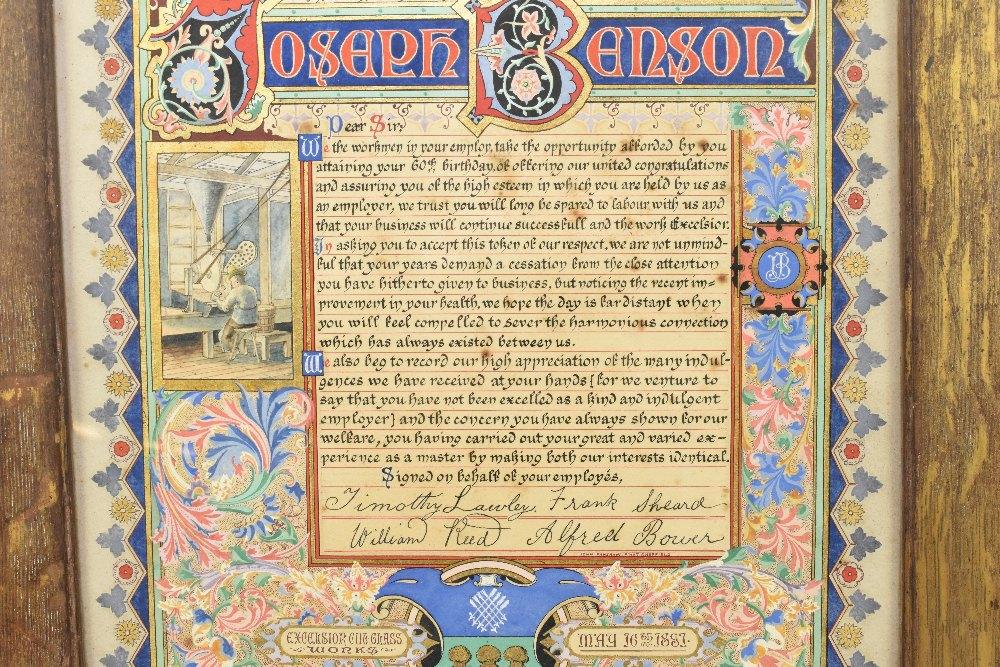 JOSEPH BENSON
Dear Sir,
We the workmen in your employ, take the opportunity afforded by you
attaining your 60th birthday, of offering our united congratulations
and assuring you of the high esteem in which you are held by us as
an employer, we trust you will long be spared to labour with us and
that your business will continue successfull and the work Excelsior.
In asking you to accept this token of our respect, we are not unmind-
ful that your years demand a cessation from the close attention
you have hitherto given to business, but noticing the recent im=
provement in your health, we hope the day is far distant when
you will feel compelled to sever the harmonious connection
which has always existed between us.
We also beg to record our high appreciation of the many indul-
gences we have received at your hands [for we venture to
say that you have not been excelled as a kind and indulgent
employer] and the concern you have always shown for our
welfare, you having carried out your great and varied ex-
perience as a master by making both our interests identical.
Signed on behalf of your employés,
Timothy Lawley. Frank Sheard
William Reed Alfred Bower
JB
EXCELSIOR CUT GLASS
WORKS
MAY 16th 1887.